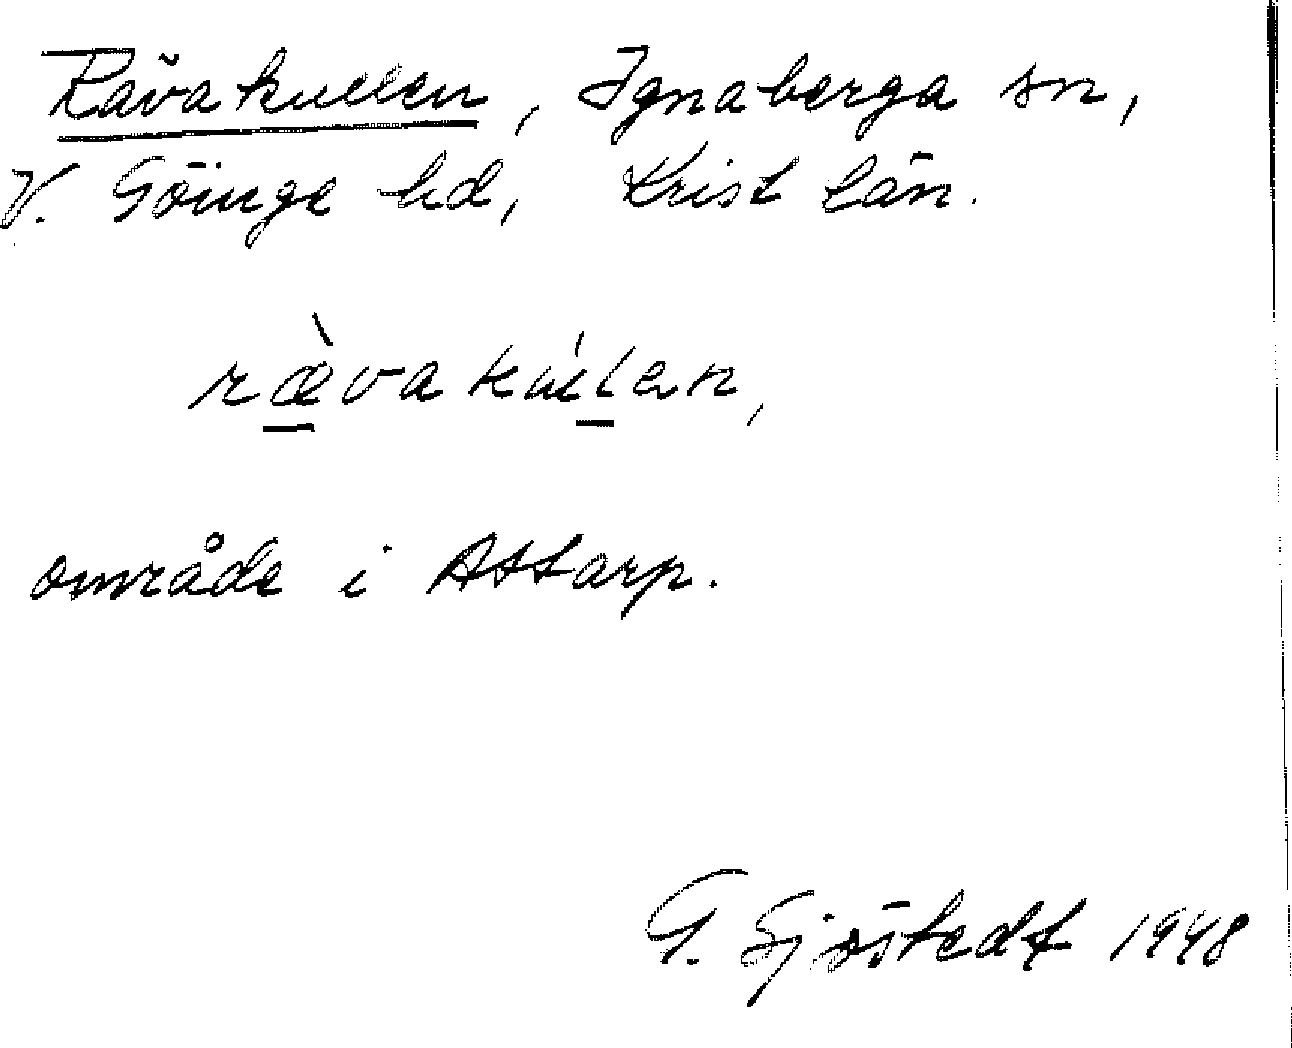 Rävakullen, Ignaberga sn,
V. Göinge hd, Krist län.
ræ̀vakúlen,
område i Attarp.
G. Sjöstedt 1948